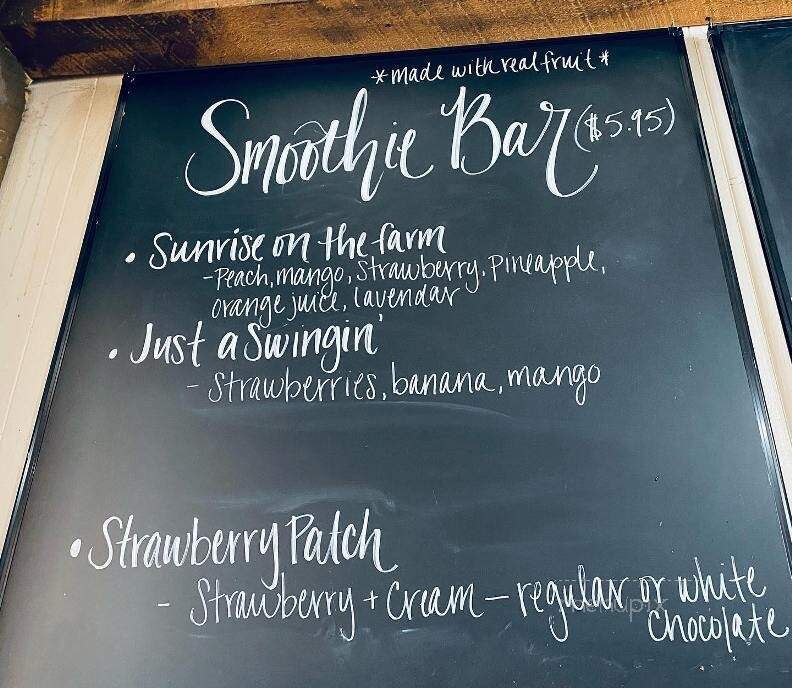 *made with real fruit*
Smoothie Bar ($5.95)
• Sunrise on the farm
-Peach, mango, strawberry, pineapple,
orange juice, lavendar
• Just a Swingin'
- Strawberries, banana, mango
• Strawberry Patch
- Strawberry + Cream – regular or white
chocolate